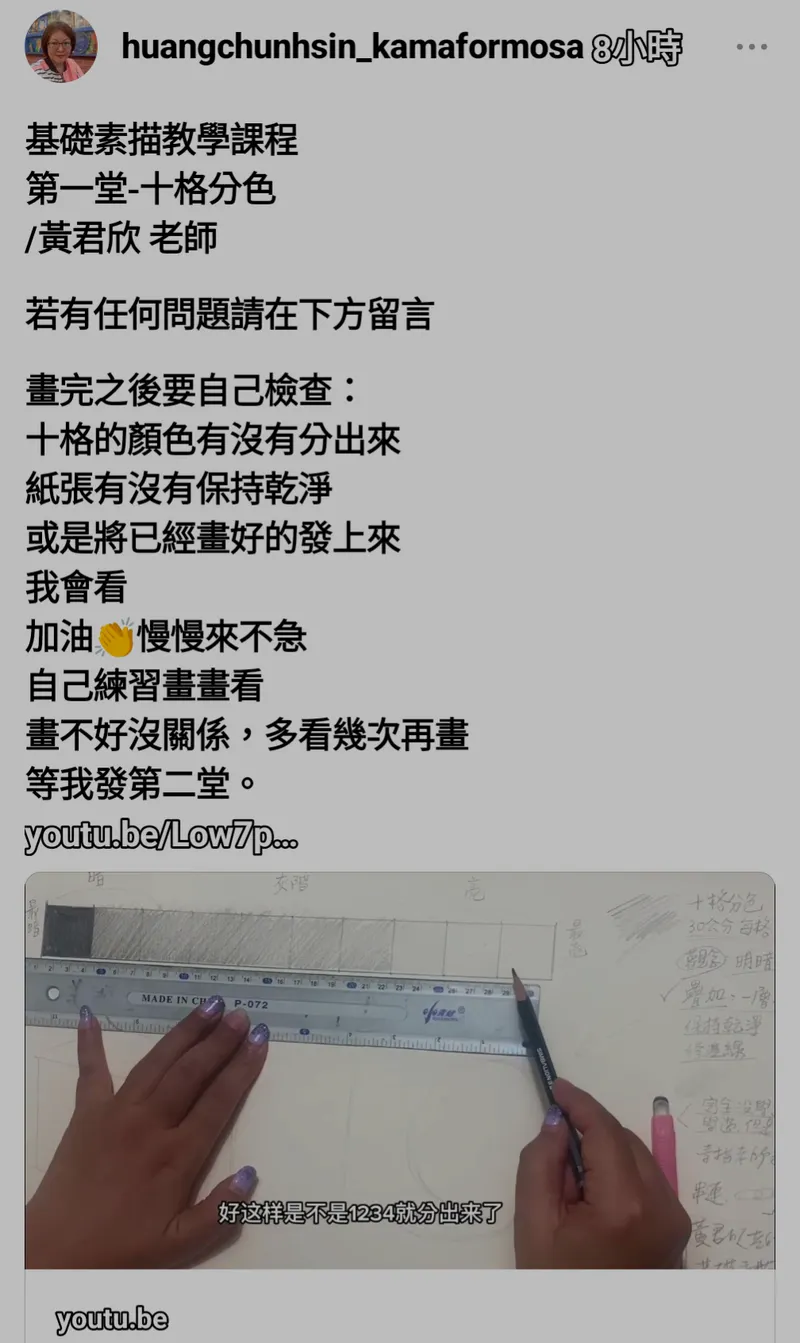 huangchunhsin_kamaformosa 8小時
基礎素描教學課程
第一堂-十格分色
/黃君欣 老師
若有任何問題請在下方留言
畫完之後要自己檢查：
十格的顏色有沒有分出來
紙張有沒有保持乾淨
或是將已經畫好的發上來
我會看
加油👏慢慢來不急
自己練習畫畫看
畫不好沒關係，多看幾次再畫
等我發第二堂。
youtu.be/Low7p...
暗 灰階 亮
最暗
十格分色
30公分 每格
明暗
疊加·一層
保持乾淨
MADE IN CH
P-072
好这样是不是1234就分出来了
youtu.be